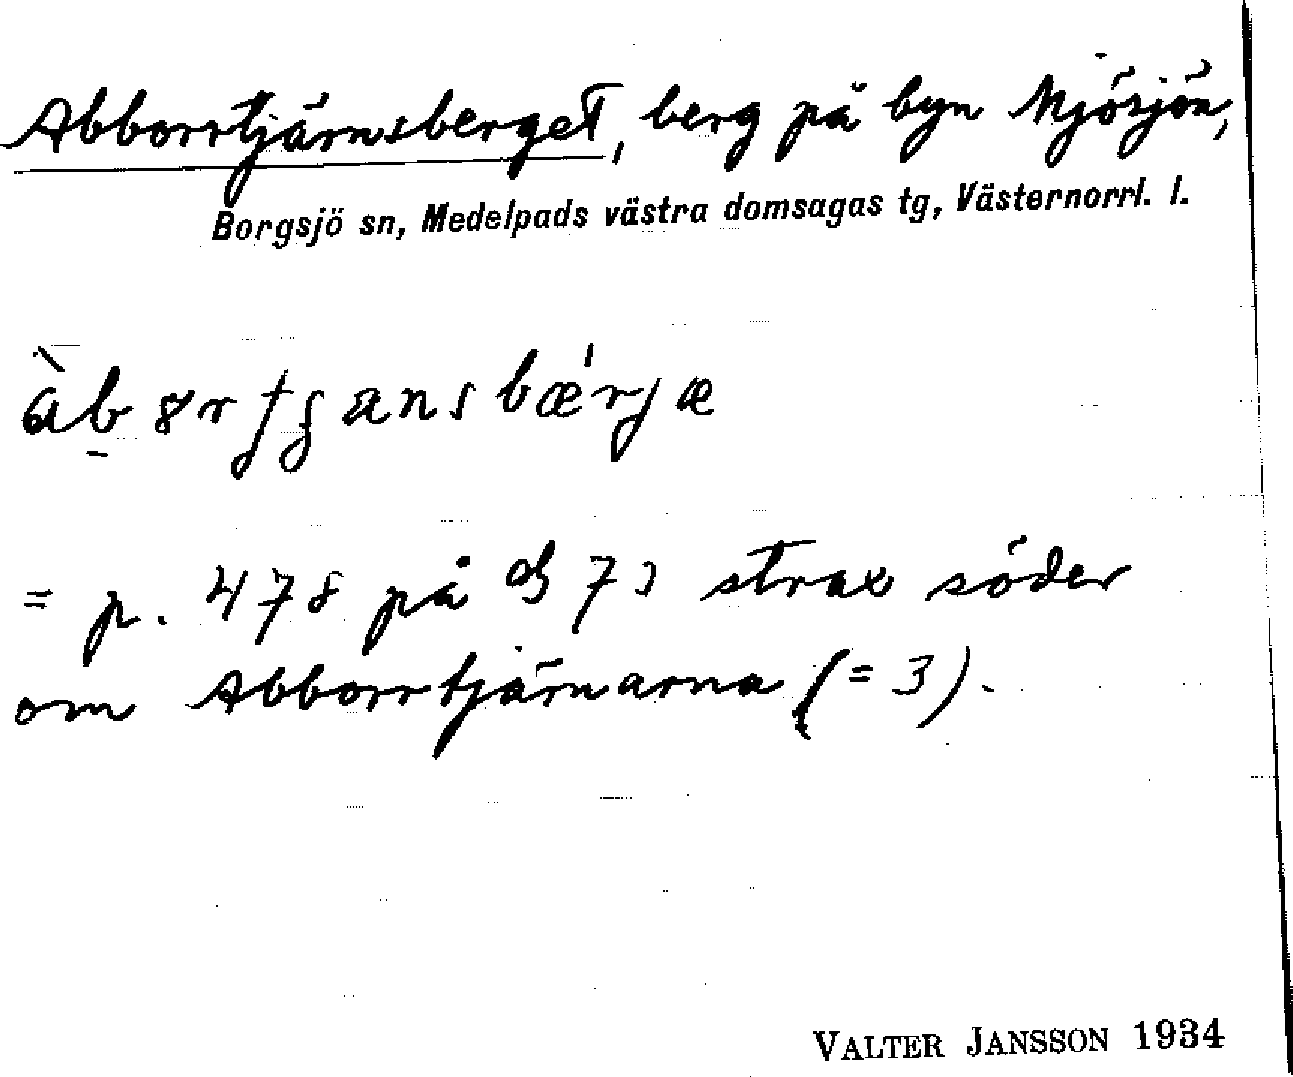 Abborrtjärnsberget, berg på byn Mjösjön,
Borgsjö sn, Medelpads västra domsagas tg, Västernorrl. l.
= p. 478 på 73 strax söder
om Abborrtjärnarna (= 3).
VALTER JANSSON 1934